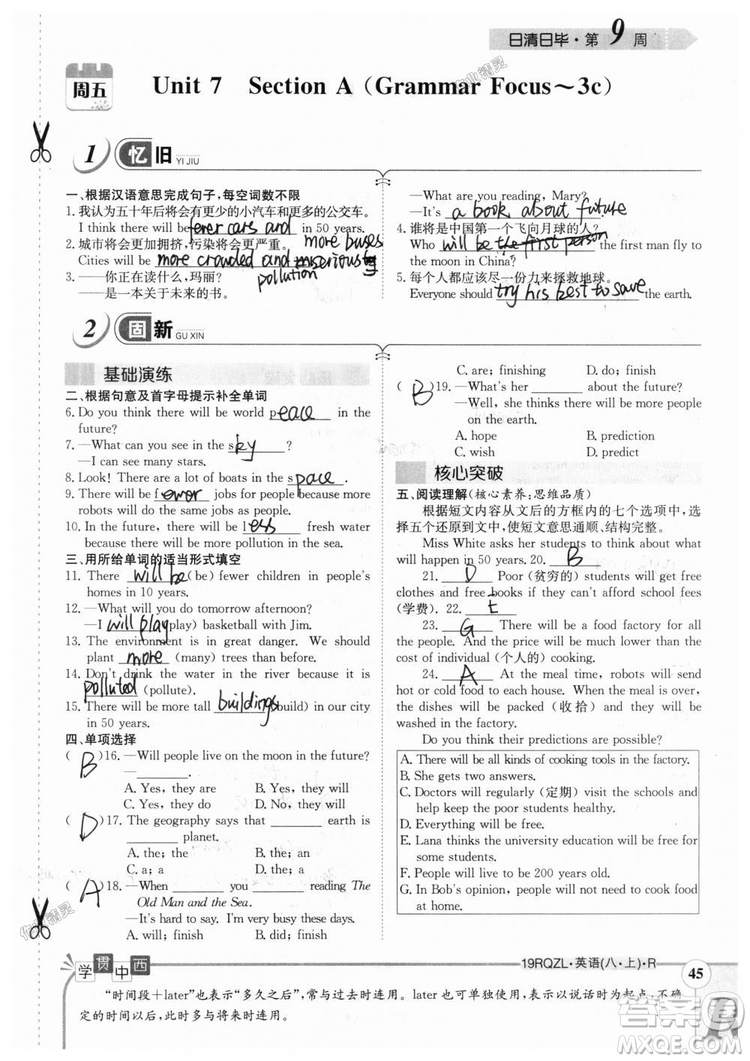 日清日毕·第9周
周五
Unit 7 Section A (Grammar Focus～3c)
1 忆旧 YI JIU
一、根据汉语意思完成句子,每空词数不限
1. 我认为五十年后将会有更少的小汽车和更多的公交车。
I think there will be fewer cars and more buses in 50 years.
2. 城市将会更加拥挤,污染将会更严重。
Cities will be more crowded and pollution
3. ——你正在读什么,玛丽?
——是一本关于未来的书。
—What are you reading, Mary?
—It's a book about future
4. 谁将是中国第一个飞向月球的人?
Who will be the first person the first man fly to
the moon in China?
5. 每个人都应该尽一份力来拯救地球。
Everyone should try his best to save the earth.
2 固新 GU XIN
基础演练
二、根据句意及首字母提示补全单词
6. Do you think there will be world peace in the
future?
7. —What can you see in the sky?
—I can see many stars.
8. Look! There are a lot of boats in the space.
9. There will be fewer jobs for people because more
robots will do the same jobs as people.
10. In the future, there will be less fresh water
because there will be more pollution in the sea.
三、用所给单词的适当形式填空
11. There will be (be) fewer children in people's
homes in 10 years.
12. —What will you do tomorrow afternoon?
—I will play (play) basketball with Jim.
13. The environment is in great danger. We should
plant more (many) trees than before.
14. Don't drink the water in the river because it is
polluted (pollute).
15. There will be more tall buildings (build) in our city
in 50 years.
四、单项选择
( B )16. —Will people live on the moon in the future?
—________.
A. Yes, they are B. Yes, they will
C. Yes, they do D. No, they will
( D )17. The geography says that ________ earth is
________ planet.
A. the; the B. the; /
C. a; a D. the; a
( A )18. —When ________ you ________ reading The
Old Man and the Sea.
—It's hard to say. I'm very busy these days.
A. will; finish B. did; finish
C. are; finishing D. do; finish
( B )19. —What's her ________ about the future?
—Well, she thinks there will be more people
on the earth.
A. hope B. prediction
C. wish D. predict
核心突破
五、阅读理解(核心素养:思维品质)
根据短文内容从文后的方框内的七个选项中,选
择五个还原到文中,使短文意思通顺、结构完整。
Miss White asked her students to think about what
will happen in 50 years. 20. B
21. D Poor (贫穷的) students will get free
clothes and free books if they can't afford school fees
(学费). 22. E
23. G There will be a food factory for all
the people. And the price will be much lower than the
cost of individual (个人的) cooking.
24. A At the meal time, robots will send hot
or cold food to each house. When the meal is over,
the dishes will be packed (收拾) and they will be
washed in the factory.
Do you think their predictions are possible?
A. There will be all kinds of cooking tools in the factory.
B. She gets two answers.
C. Doctors will regularly (定期) visit families and
help keep people healthy.
D. Peter thinks the government will do more to help
the poor students.
E. Lana thinks the university education will be free
for everyone.
F. People will be 200 years old.
G. In Bob's opinion, people will not cook food
at home.
19RQZL·英语(八·上)·R
45
学贯中西
"时间段+later"也表示"多久之后",常与过去时连用。later也可单独使用,表示以说话时为起点,不确
定的时间以后,此时多与将来时连用。
答案圈
MXQE.COM